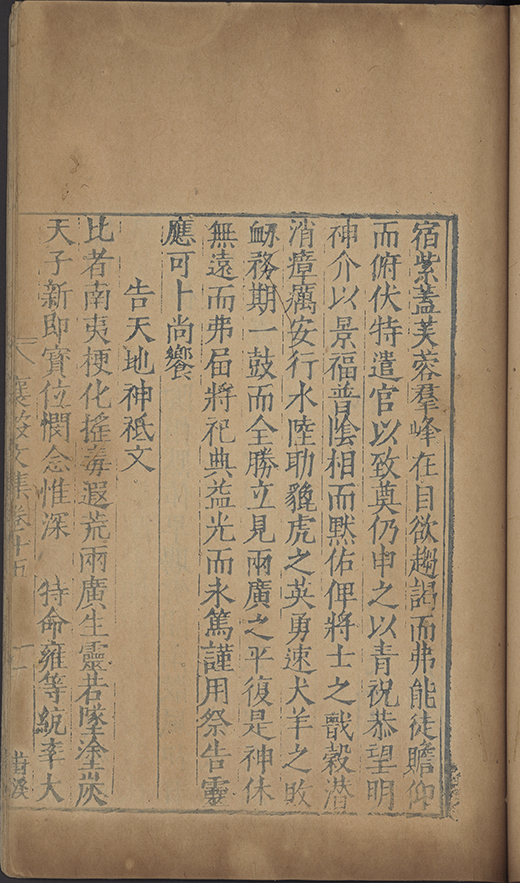 宿紫蓋芙蓉羣峰在目欲趨謁而弗能徒瞻仰
而俯伏特遣官以致奠仍申之以青祝恭望明
神介以景福普隂相而黙佑俾將士之戩穀潜
消瘴癘安行水陸助貔虎之英勇速犬羊之敗
衂務期一鼓而全勝立見兩廣之平復是神休
無逺而弗届將祀典益光而未篤謹用祭告靈
應可卜尚饗
告天地神祗文
比者南夷梗化搖毒遐荒兩廣生靈若墜塗炭
天子新即寳位憫念惟深 特命雍等統率大
襄毅文集卷十五